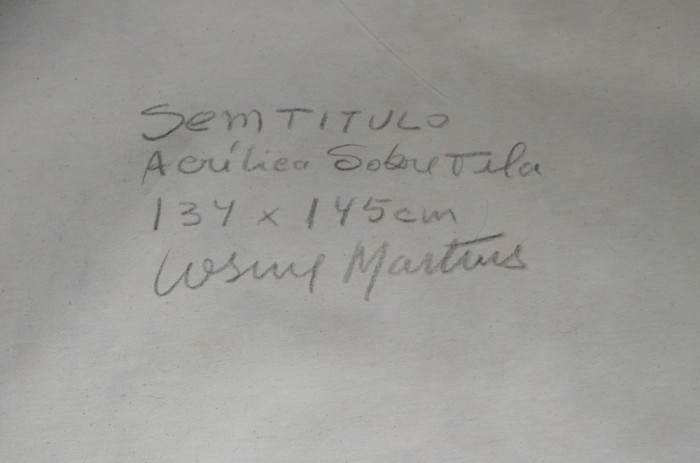 Sem TITULO
Acrílica Sobre Tela
134 x 145cm
Cosme Martins